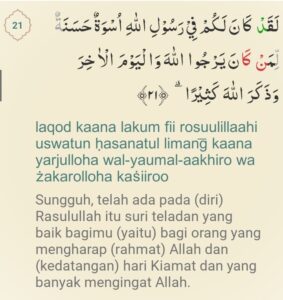 21
لَقَدْ كَانَ لَكُمْ فِيْ رَسُوْلِ اللّٰهِ اُسْوَةٌ حَسَنَةٌ
لِّمَنْ كَانَ يَرْجُوا اللّٰهَ وَالْيَوْمَ الْاٰخِرَ
وَذَكَرَ اللّٰهَ كَثِيْرًاۗ ﴿٢١﴾
laqod kaana lakum fii rosuulillaahi
uswatun ḥasanatul limang̅ kaana
yarjulloha wal-yaumal-aakhiro wa
żakarolloha kaṡiiroo
Sungguh, telah ada pada (diri)
Rasulullah itu suri teladan yang
baik bagimu (yaitu) bagi orang yang
mengharap (rahmat) Allah dan
(kedatangan) hari Kiamat dan yang
banyak mengingat Allah.